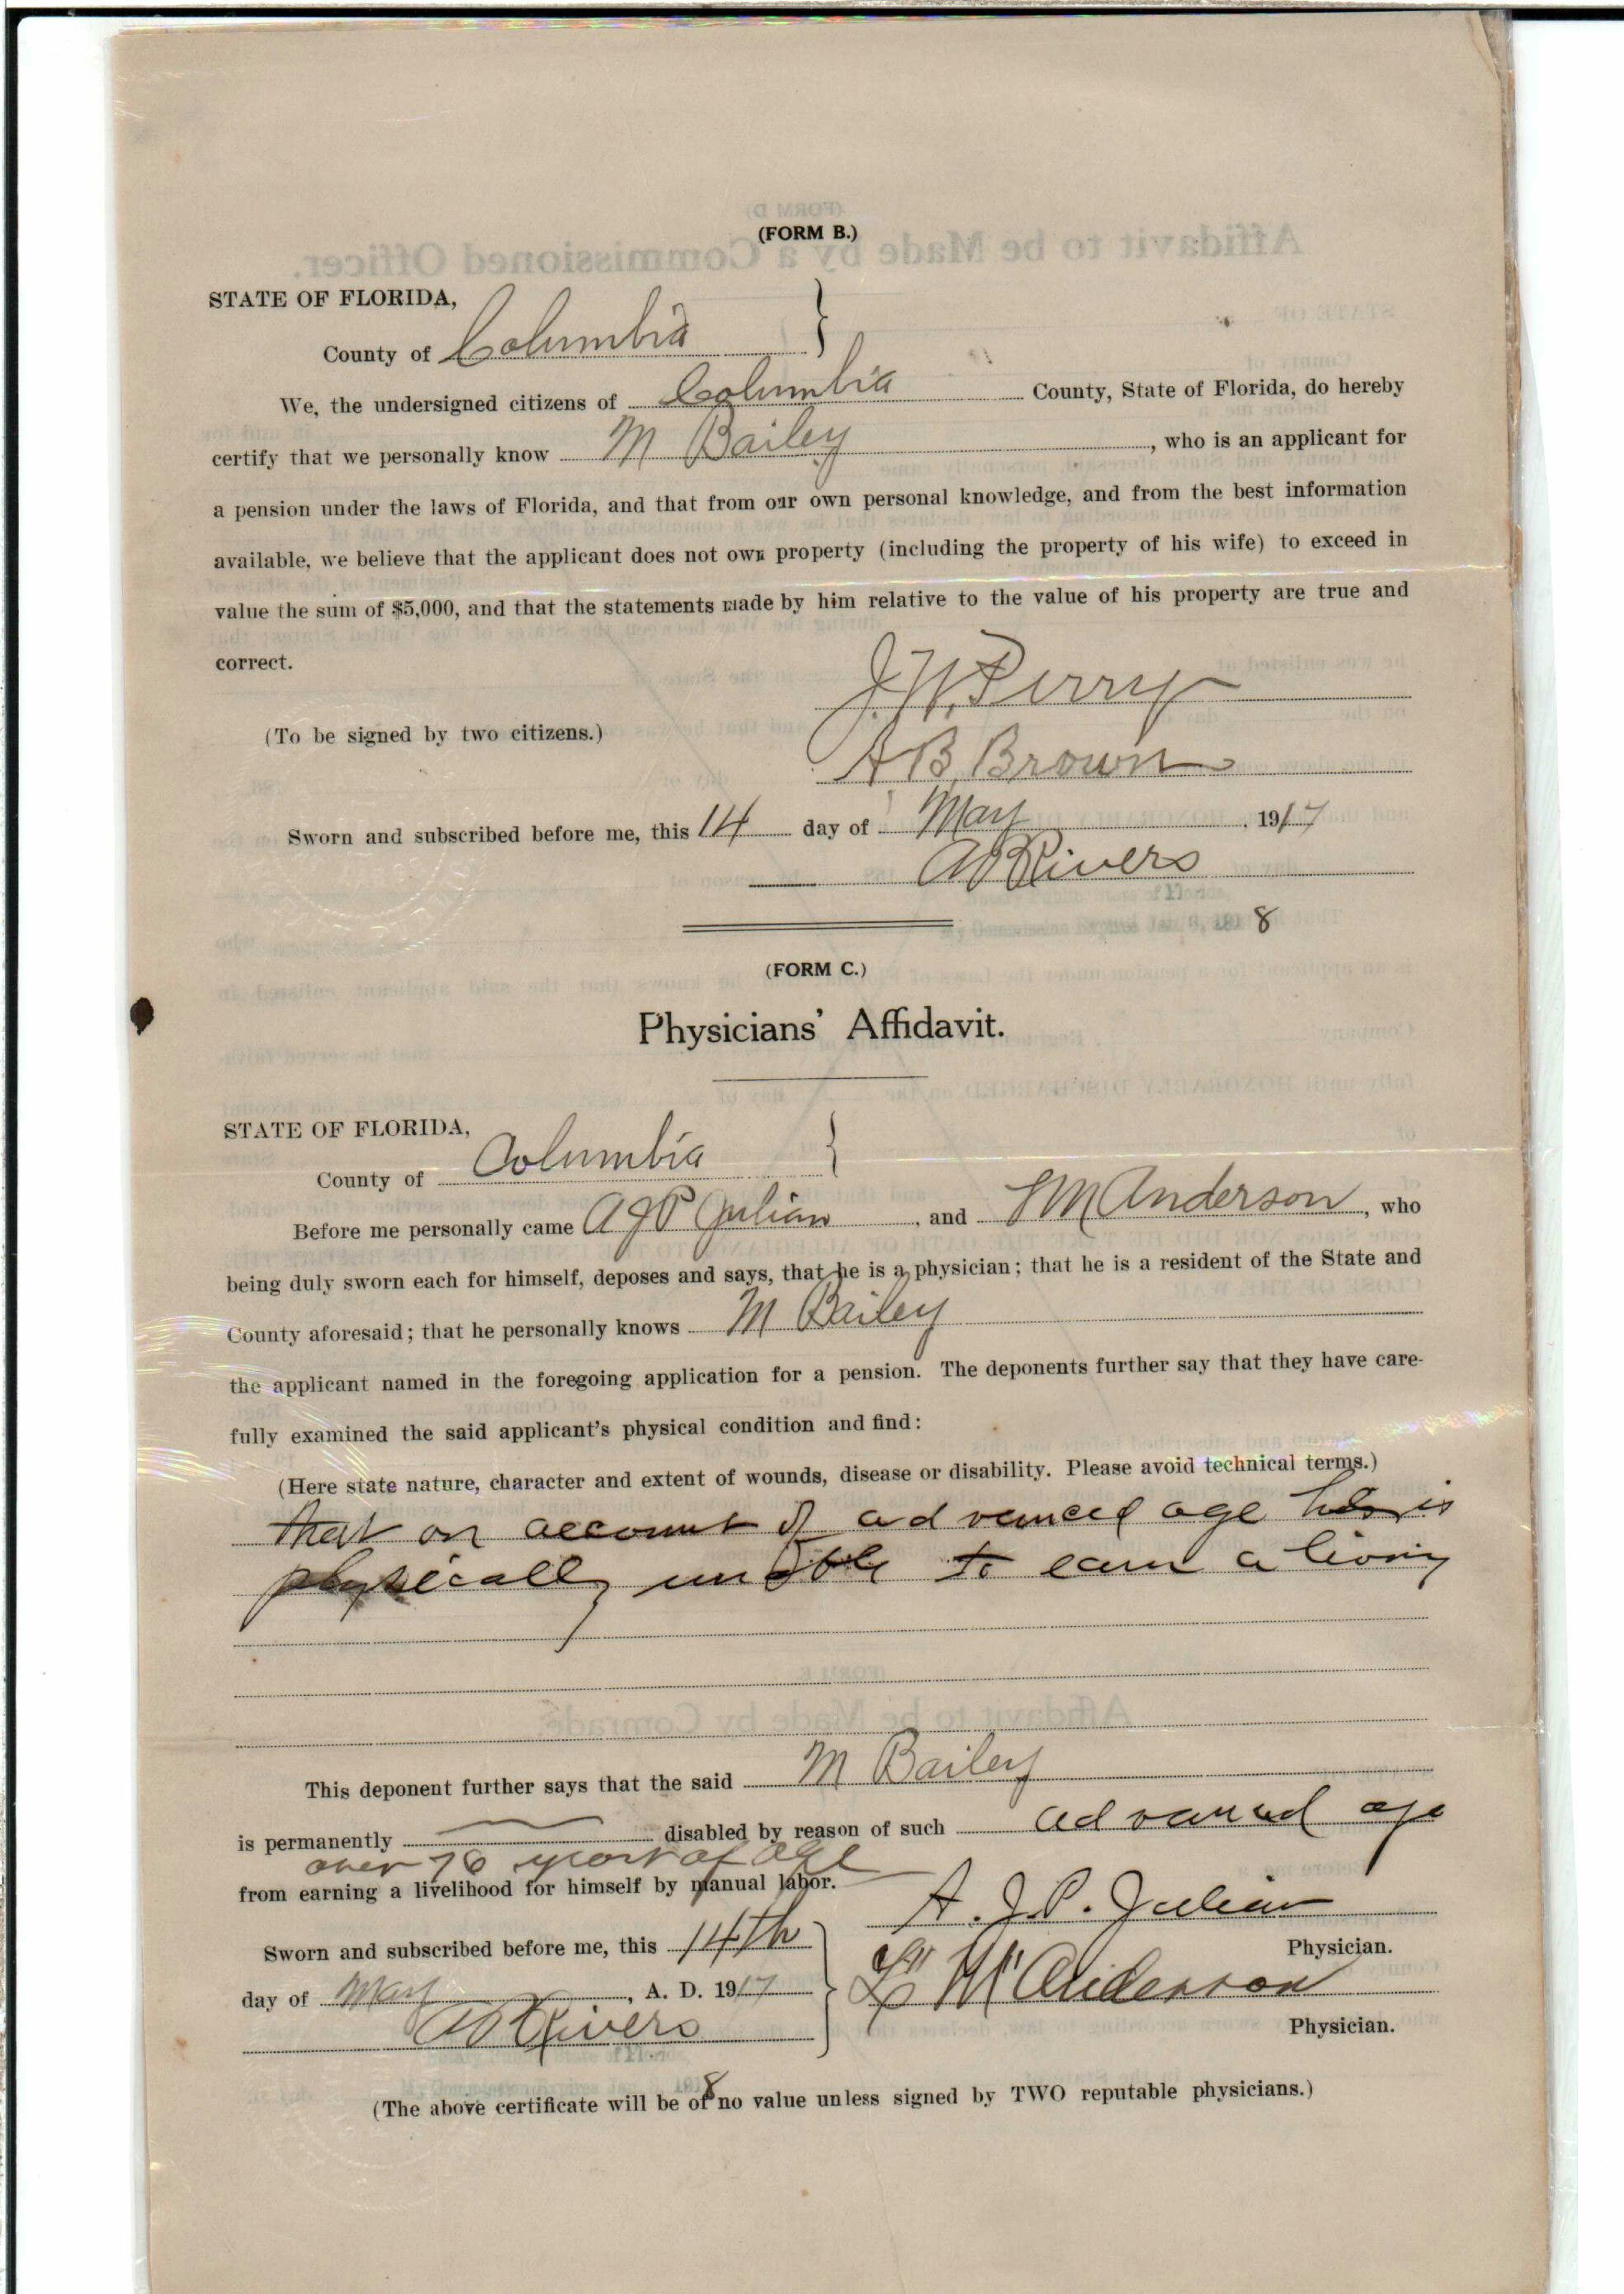 (FORM B.)
STATE OF FLORIDA,
County of Columbia }
We, the undersigned citizens of Columbia County, State of Florida, do hereby
certify that we personally know M Bailey, who is an applicant for
a pension under the laws of Florida, and that from our own personal knowledge, and from the best information
available, we believe that the applicant does not own property (including the property of his wife) to exceed in
value the sum of $5,000, and that the statements made by him relative to the value of his property are true and
correct.
J. W. Perry
(To be signed by two citizens.)
A B Brown
Sworn and subscribed before me, this 14 day of May, 1917
Rivers
My Commission Expires Jan. 8
(FORM C.)
Physicians' Affidavit.
STATE OF FLORIDA,
County of Columbia }
Before me personally came A J P Julian, and M Anderson, who
being duly sworn each for himself, deposes and says, that he is a physician; that he is a resident of the State and
County aforesaid; that he personally knows M Bailey
the applicant named in the foregoing application for a pension. The deponents further say that they have care-
fully examined the said applicant's physical condition and find:
(Here state nature, character and extent of wounds, disease or disability. Please avoid technical terms.)
that on account of advanced age he is
physically unable to earn a living
This deponent further says that the said M Bailey
is permanently disabled by reason of such advanced age
over 76 years of age
from earning a livelihood for himself by manual labor.
A. J. P. Julian
Sworn and subscribed before me, this 14th
Physician.
day of May, A. D. 1917 }
M Anderson
Rivers
Physician.
(The above certificate will be of no value unless signed by TWO reputable physicians.)